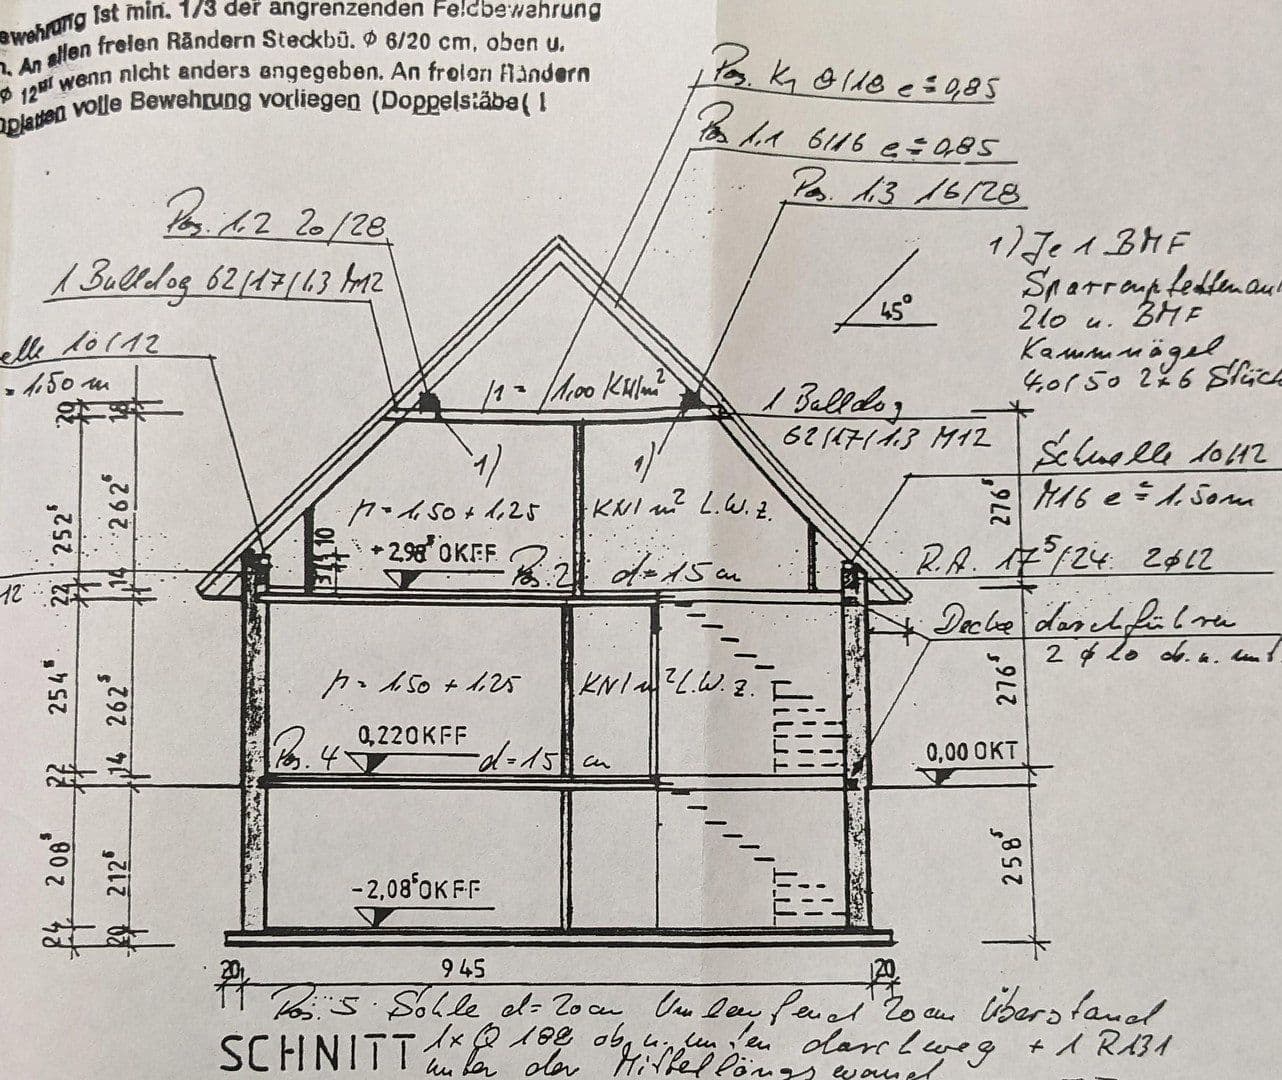 ewehrung ist min. 1/3 der angrenzenden Feldbewahrung
n. An allen freien Rändern Steckbü. ϕ 6/20 cm, oben u.
ϕ 12er wenn nicht anders angegeben. An freien Rändern
nplatten volle Bewehrung vorliegen (Doppelstäbe( !
Pos. K1 8/18 e = 0,85
Pos 1.1 6/16 e = 0,85
Pos. 1.3 16/28
Pos. 1.2 20/28
1 Bulldog 62/17/1.3 M12
elle 10/12
= 1,50 m
1) Je 1 BMF
Sparrenpfetten
210 u. BMF
Kammnägel
4,0/50 2x6 Stück
45°
p = 1,00 KN/m²
1 Bulldog
62/17/1.3 M12
Schwelle 10/12
M16 e = 1.50m
1)
1)
p = 1,50 + 1,25 KN/m² L.W.Z.
+2,98⁵ OKFF
Pos. 2 d = 15 cm
R.A. 17⁵/24 2ϕ12
Decke durchführen
2 ϕ 10 ob. u. unt
12
p = 1.50 + 1.25 KN/m² L.W.Z.
0,22 OKFF
Pos. 4 d = 15 cm
0,00 OKT
-2,08⁵ OKFF
20
252⁵
22
254⁵
22
208⁵
24
18
262⁵
14
262⁵
14
212⁵
20
10
276⁵
276⁵
258⁵
20
945
20
Pos. 5 Sohle d = 20 cm Umlaufend 20 cm Überstand
SCHNITT
1x Q 188 ob. u. unten durchweg + 1 R131
unter der Mittellängswand